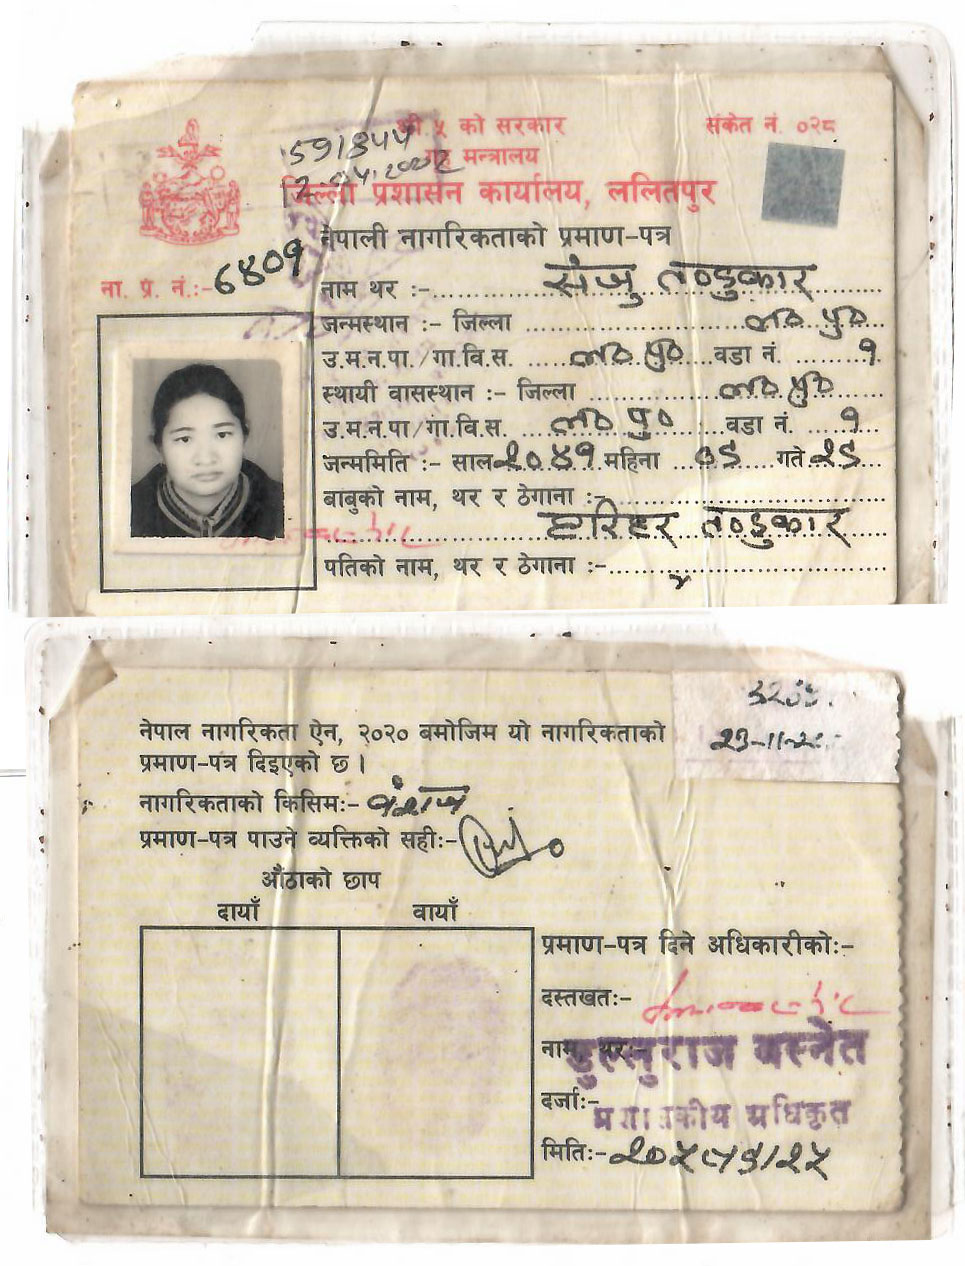 श्री ५ को सरकार
संकेत नं. ०२८
गृह मन्त्रालय
जिल्ला प्रशासन कार्यालय, ललितपुर
591344
नेपाली नागरिकताको प्रमाण-पत्र
ना. प्र. नं.:- ६४०१
नाम थर :- संजु तण्डुकार
जन्मस्थान :- जिल्ला ल० पु०
उ.म.न.पा./गा.वि.स. ल० पु० वडा नं. १
स्थायी वासस्थान :- जिल्ला ल० पु०
उ.म.न.पा/गा.वि.स. ल० पु० वडा नं. १
जन्ममिति :- साल २०४१ महिना ०८ गते २८
बाबुको नाम, थर र ठेगाना :-
हरिहर तण्डुकार
पतिको नाम, थर र ठेगाना :- x
नेपाल नागरिकता ऐन, २०२० बमोजिम यो नागरिकताको
प्रमाण-पत्र दिइएको छ ।
नागरिकताको किसिमः- वंशज
प्रमाण-पत्र पाउने व्यक्तिको सहीः-
औंठाको छाप
दायाँ बायाँ
प्रमाण-पत्र दिने अधिकारीकोः-
दस्तखतः-
नाम थरः- राज बस्नेत
दर्जाः- प्रशासकीय अधिकृत
मितिः-